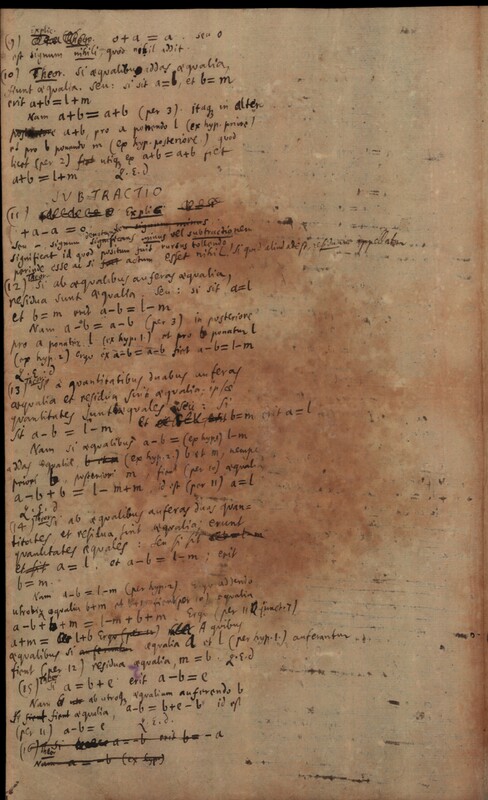 (9) Explic. 0+a = a. seu 0
est signum nihili, quod nihil addit.
(10) Theor. Si aequalibus addas aequalia,
fiunt aequalia. Seu: si sit a=l, et b=m
erit a+b=l+m
Nam a+b = a+b (per 3). itaque in altero
a+b, pro a ponendo l (ex hyp. priore)
et pro b ponendo m (ex hyp. posteriore) quod
licet (per 2) utique ex a+b=a+b fiet
a+b = l+m Q.E.D
SUBTRACTIO
(11) Explic
+a-a = 0
seu - signum significans minus vel subtractionem
significat id quod positum fuit rursus tollendo
perinde esse ac si actum esset nihil. Si quid aliud adest, residuum appellatur
(12) Theor. Si ab aequalibus auferas aequalia,
residua sunt aequalia. Seu: si sit a=l
et b=m erit a-b = l-m
Nam a-b = a-b (per 3) in posteriore
pro a ponatur l (ex hyp. 1) et pro b ponatur m
(ex hyp. 2) Ergo ex a-b=a-b fiet a-b=l-m
Q.E.D
(13) Theor. Si a quantitatibus duabus auferas
aequalia et residua sint aequalia, ipsae
quantitates sunt aequales seu: Si
sit a-b = l-m et b=m erit a=l
Nam si aequalibus a-b = (ex hyp) l-m
addas aequalia (ex hyp. 2) b et m, nempe
priori b, posteriori m, fient (per 10) aequalia
a-b+b = l-m+m id est (per 11) a=l
Q.E.D
(14) Theor. Si ab aequalibus auferas duas quan-
titates et residua sint aequalia, erunt
quantitates aequales: Seu si sit
a = l, et a-b = l-m; erit
b=m.
Nam a-b=l-m (per hyp. 2) addendo
utrobique aequalia b+m et fient (per 10) aequalia
a-b+b+m = l-m+b+m Ergo (per 11)
a+m = l+b A quibus
aequalibus si aequalia a et l (per hyp. 1) auferantur
fient (per 12) residua aequalia, m=b. Q.E.D
(15) Theor. Si a = b+e erit a-b = e
Nam ab utroque aequalium auferendo b
fient aequalia, a-b = b+e-b id est
(per 11) a-b=e Q.E.D
(16) Theor. Si a = -b erit b = -a
Nam a = -b (ex hyp)